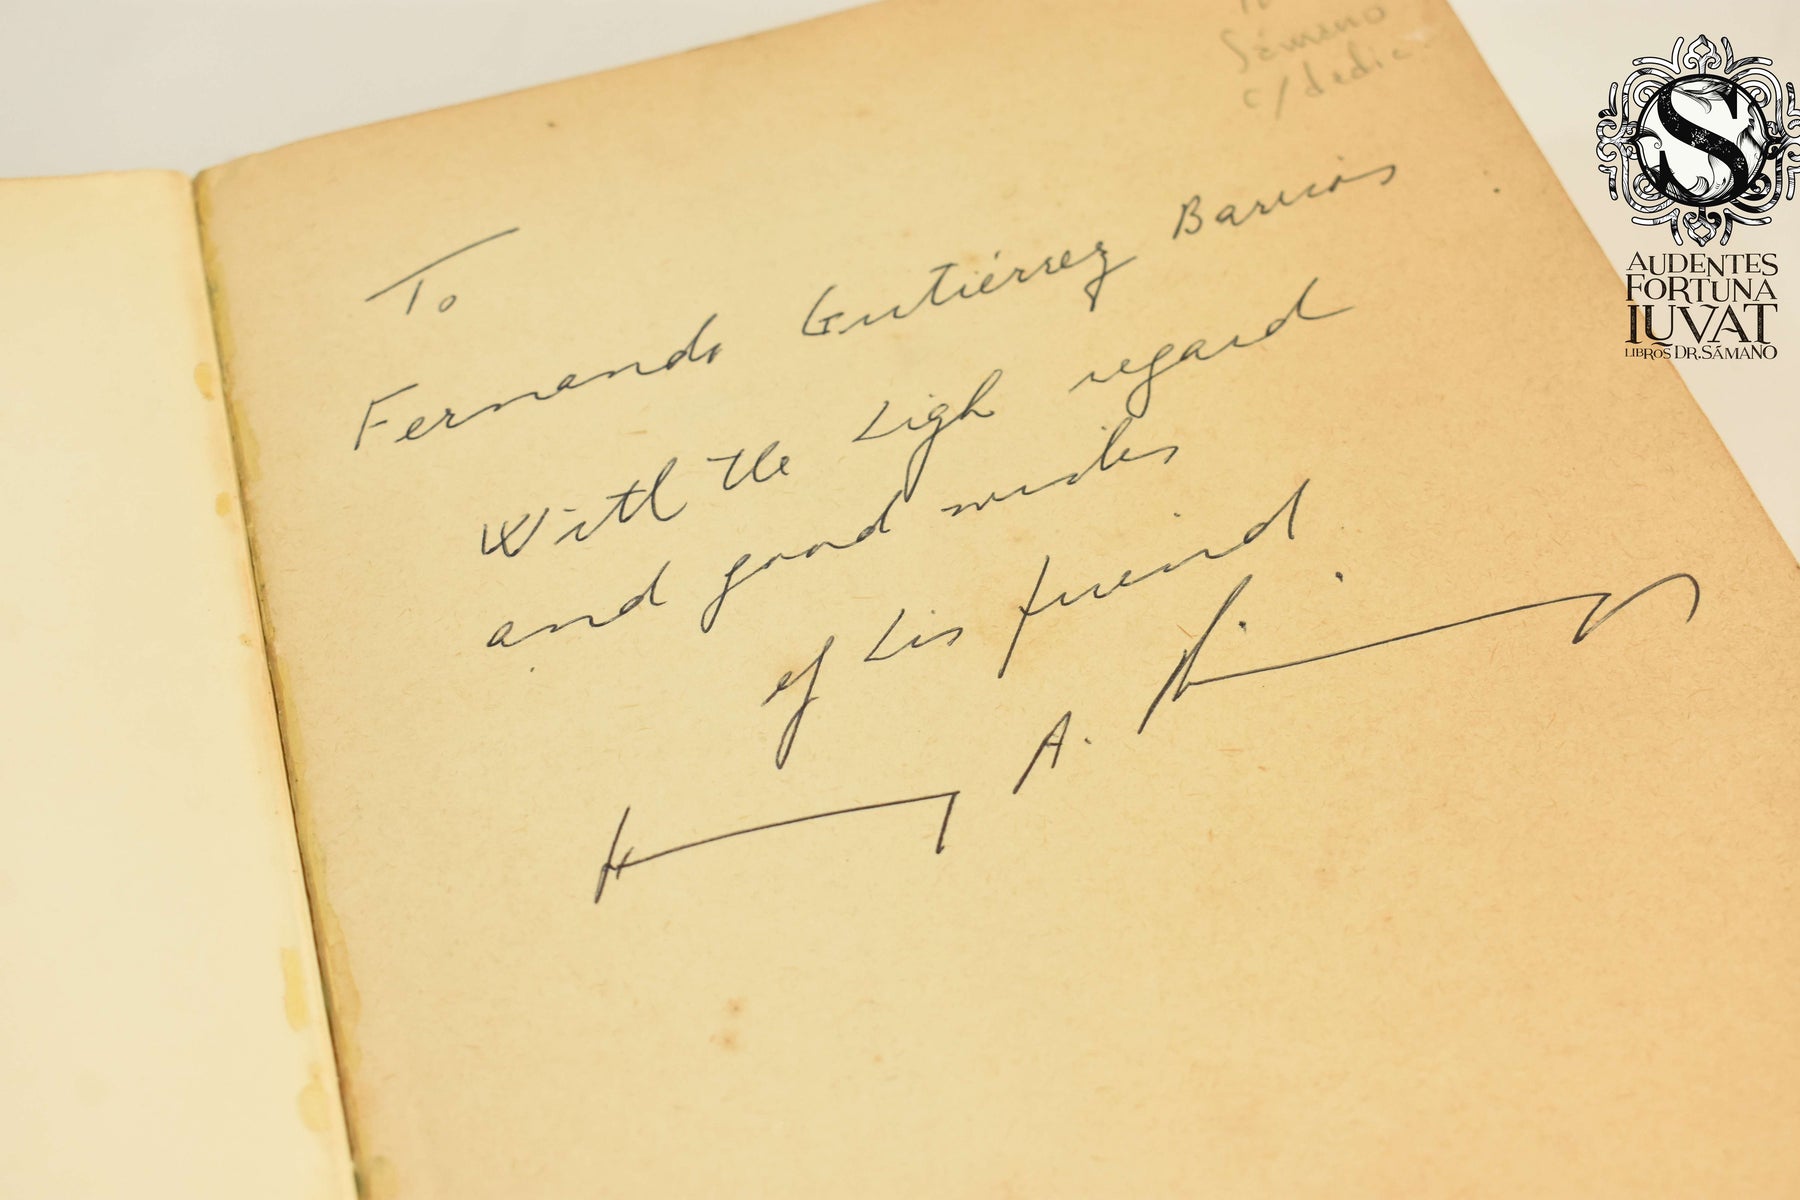 Sámano
c/dedic.
To
Fernando Gutiérrez Barrios
With the high regard
and good wishes
of his friend
Henry A.
S
AUDENTES
FORTUNA
IUVAT
LIBROS DR. SÁMANO